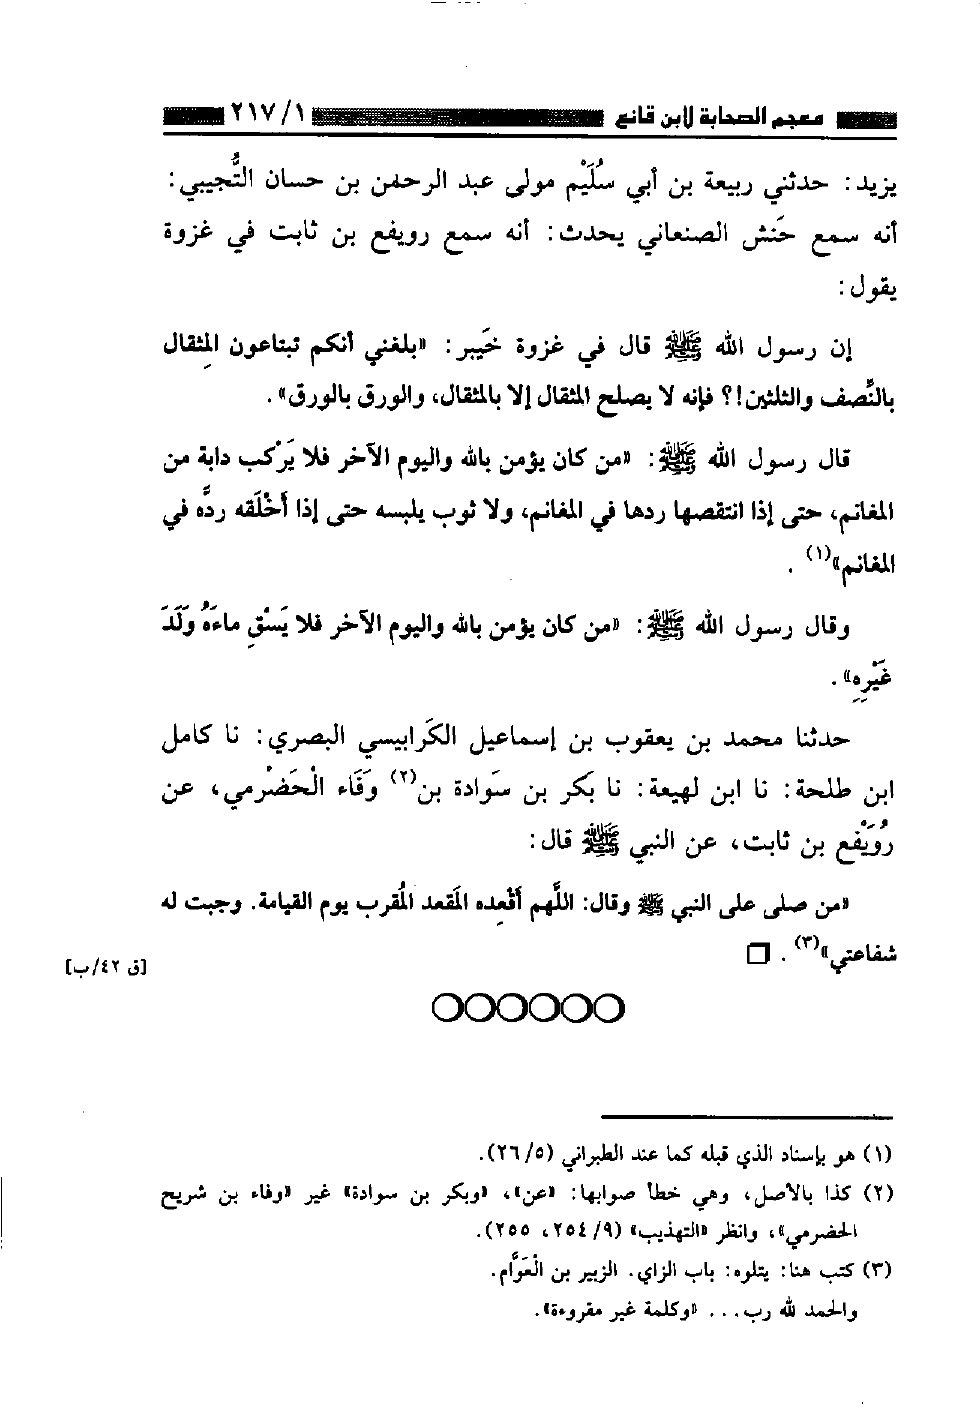 معجم الصحابة لابن قانع ٢١٧/١
يزيد: حدثني ربيعة بن أبي سُلَيْم مولى عبد الرحمن بن حسان التُّجيبي:
أنه سمع حَنش الصنعاني يحدث: أنه سمع رويفع بن ثابت في غزوة
يقول:
إن رسول الله ﷺ قال في غزوة خَيبر: «بلغني أنكم تبتاعون المِثقال
بالنُّصف والثلثين!؟ فإنه لا يصلح المثقال إلا بالمثقال، والورق بالورق».
قال رسول الله ﷺ: «من كان يؤمن بالله واليوم الآخر فلا يَرْكب دابة من
المغانم، حتى إذا انتقصها ردها في المغانم، ولا ثوب يلبسه حتى إذا أخْلَقه ردَّه في
المغانم»(١).
وقال رسول الله ﷺ: «من كان يؤمن بالله واليوم الآخر فلا يَسْقِ ماءَهُ ولَدَ
غَيْرِهِ».
حدثنا محمد بن يعقوب بن إسماعيل الكَرابيسي البصري: نا كامل
ابن طلحة: نا ابن لهيعة: نا بَكر بن سَوادة بن(٢) وَفَاء الْحَضْرمي، عن
رُوَيْفع بن ثابت، عن النبي ﷺ قال:
«من صلى على النبي ﷺ وقال: اللَّهم أقْعِده المَقعد المُقرب يوم القيامة. وجبت له
شفاعتي»(٣). □
[ق ٤٢/ب]
(١) هو بإسناد الذي قبله كما عند الطبراني (٢٦/٥).
(٢) كذا بالأصل، وهي خطأ صوابها: «عن»، «وبكر بن سوادة» غير «وفاء بن شريح
الحضرمي»، وانظر «التهذيب» (٢٥٤/٩، ٢٥٥).
(٣) كتب هنا: يتلوه: باب الزاي. الزبير بن الْعَوَّام.
والحمد لله رب... «وكلمة غير مقروءة».